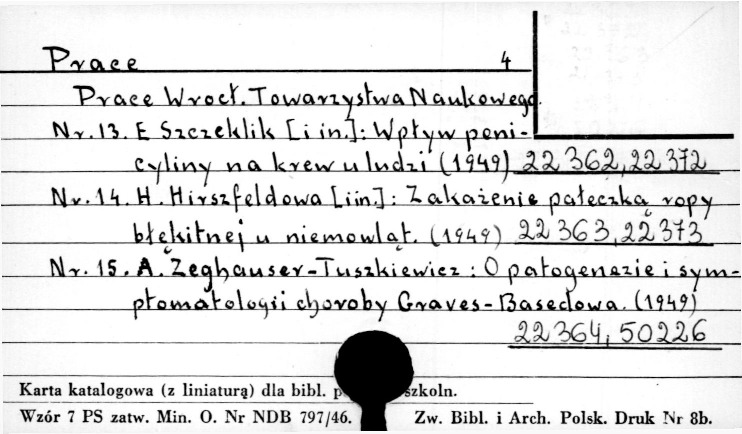 Prace 4
Prace Wrocł. Towarzystwa Naukowego.
Nr. 13. E Szczeklik [i in.]: Wpływ peni-
cyliny na krew u ludzi (1949) 22 362, 22 372
Nr. 14. H. Hirszfeldowa [i in.]: Zakażenie pałeczką ropy
błękitnej u niemowląt. (1949) 22 363, 22 373
Nr. 15. A. Zeghauser-Tuszkiewicz: O patogenezie i sym-
ptomatologii choroby Graves-Basedowa. (1949)
22 364, 50226
Karta katalogowa (z liniaturą) dla bibl. szkoln.
Wzór 7 PS zatw. Min. O. Nr NDB 797/46. Zw. Bibl. i Arch. Polsk. Druk Nr 8b.